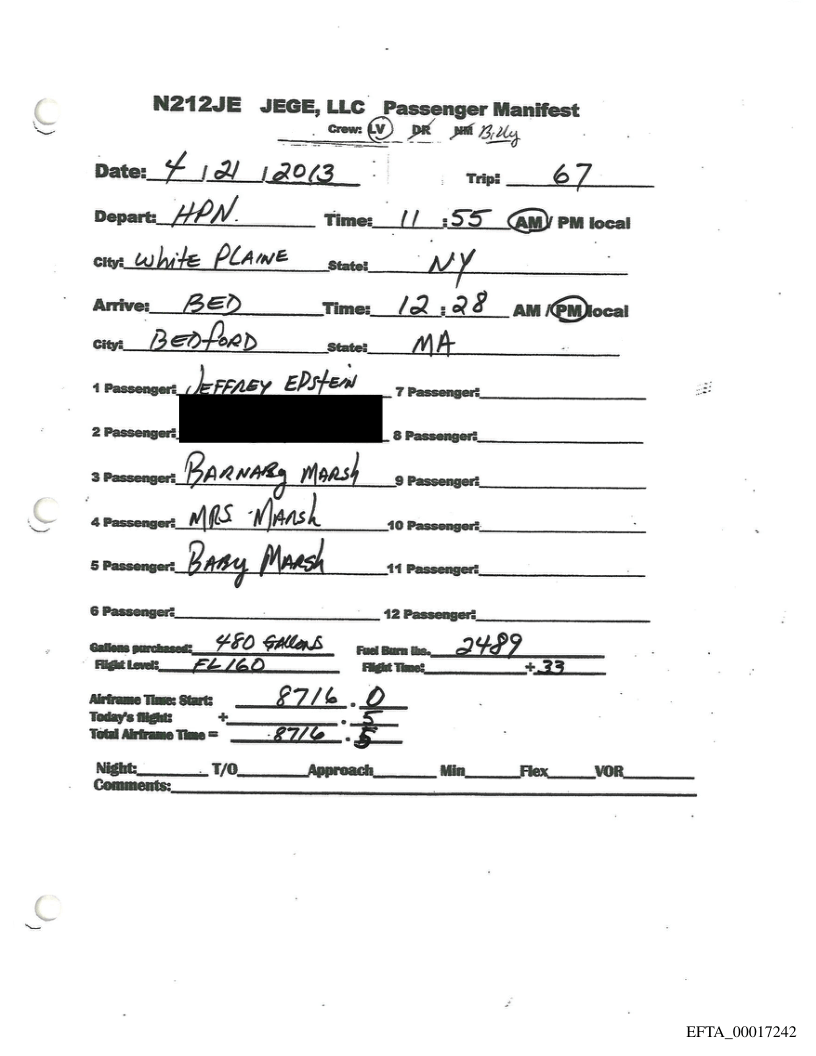 N212JE JEGE, LLC Passenger Manifest
Crew: LV DR NM Billy
Date: 4 / 21 / 2013 Trip: 67
Depart: HPN. Time: 11 : 55 AM / PM local
City: White PLAINE State: NY
Arrive: BED Time: 12 : 28 AM / PM local
City: BEDfORD State: MA
1 Passenger: JEFFREY EPStEIN 7 Passenger:
2 Passenger: 8 Passenger:
3 Passenger: BARNABy MARSh 9 Passenger:
4 Passenger: MRS MARSh 10 Passenger:
5 Passenger: BABy MARSh 11 Passenger:
6 Passenger: 12 Passenger:
Gallons purchased: 480 GAllONS Fuel Burn lbs. 2489
Flight Level: FL 160 Flight Time: + 33
Airframe Time: Start: 8716 . 0
Today's flight: + . 5
Total Airframe Time = 8716 . 5
Night: T/O Approach Min Flex VOR
Comments:
EFTA_00017242